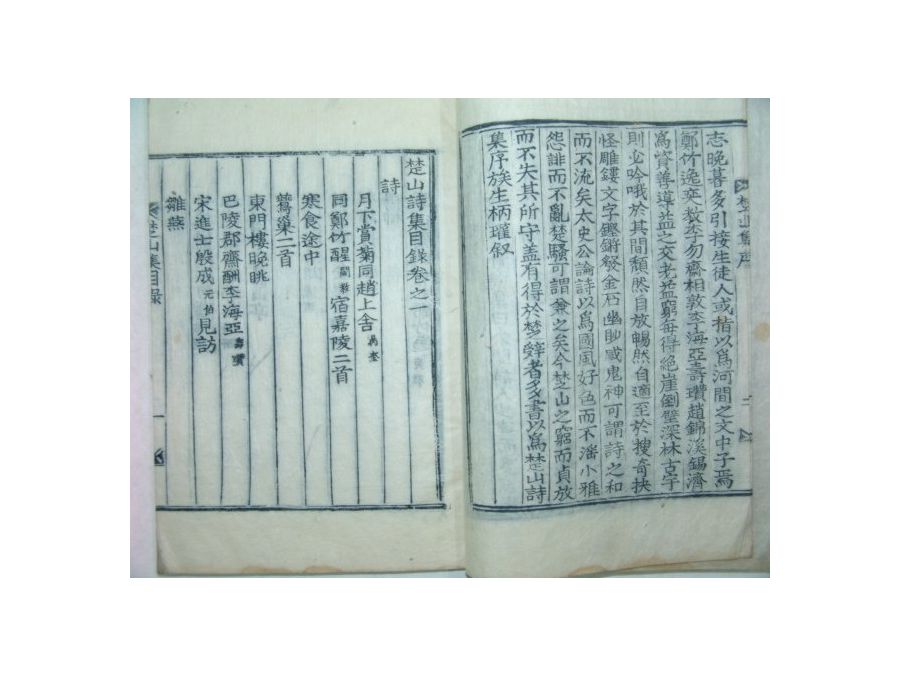 楚山集序
二
志晩暮多引接生徒人或指以爲河間之文中子焉
鄭竹逸英教李勿齋相敦李海亞壽瓚趙錦溪錫濟
爲資善導益之交老益窮每得絶崖倒壁深林古宇
則必吟哦於其間頹然自放暢然自適至於搜奇抉
怪雕鏤文字鏗鏘發金石幽眇感鬼神可謂詩之和
而不流矣太史公論詩以爲國風好色而不滛小雅
怨誹而不亂楚騷可謂兼之矣今楚山之窮而貞放
而不失其所守盖有得於楚辭者多書以爲楚山詩
集序族生柄瓘叙
楚山詩集目錄卷之一
詩
月下賞菊同趙上舍 萬奎
同鄭竹醒 宿嘉陵二首
寒食途中
鶯巢二首
東門樓晩眺
巴陵郡齋酬李海亞 壽瓚
宋進士殷成 元伯 見訪
雛燕
楚山集目錄
一